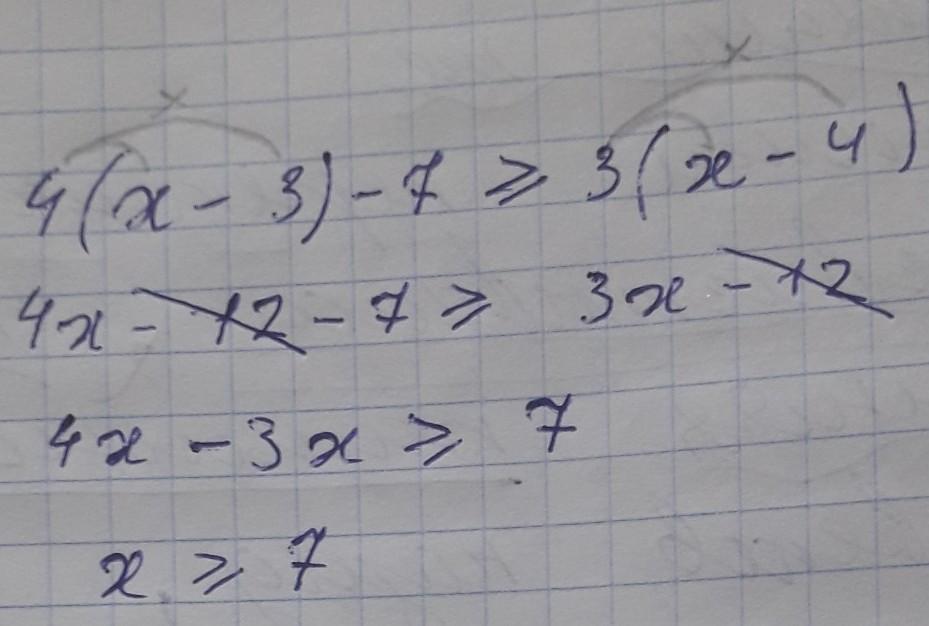 4(x - 3) - 7 ≥ 3(x - 4)
4x - 12 - 7 ≥ 3x - 12
4x - 3x ≥ 7
x ≥ 7